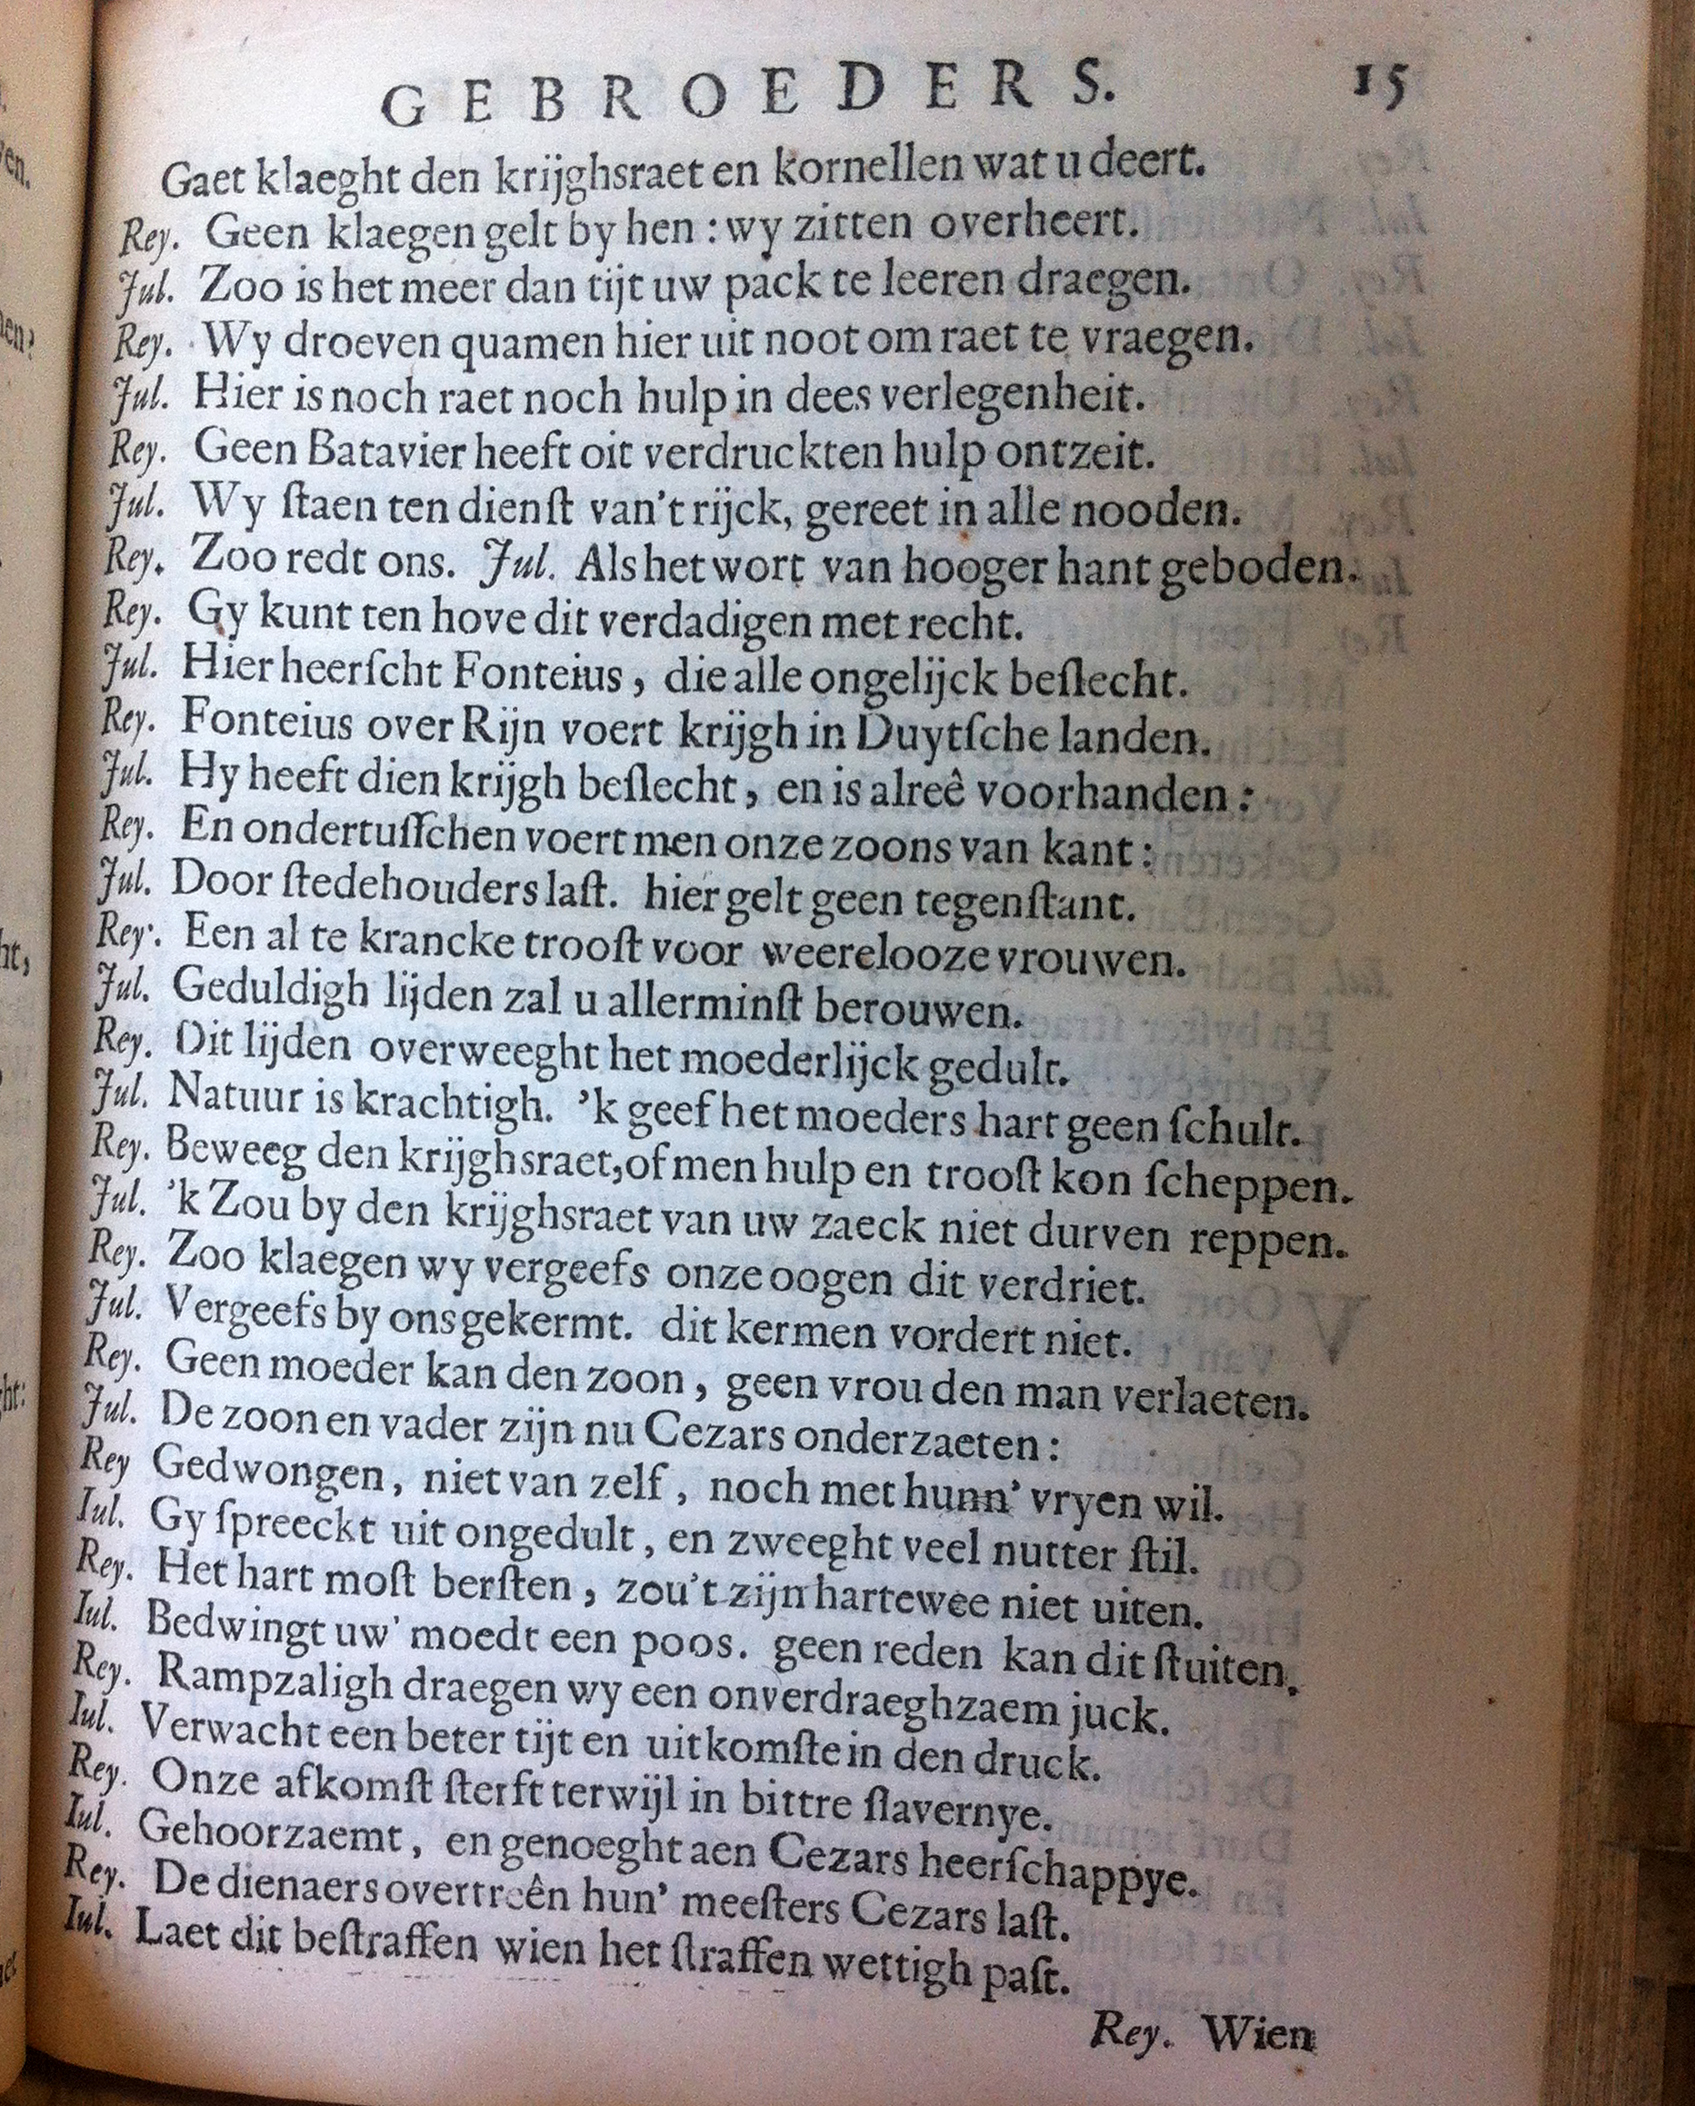 GEBROEDERS. 15
Gaet klaeght den krijghsraet en kornellen wat u deert.
Rey. Geen klaegen gelt by hen : wy zitten overheert.
Jul. Zoo is het meer dan tijt uw pack te leeren draegen.
Rey. Wy droeven quamen hier uit noot om raet te vraegen.
Jul. Hier is noch raet noch hulp in dees verlegenheit.
Rey. Geen Batavier heeft oit verdruckten hulp ontzeit.
Jul. Wy ſtaen ten dienſt van't rijck, gereet in alle nooden.
Rey. Zoo redt ons. Jul. Als het wort van hooger hant geboden.
Rey. Gy kunt ten hove dit verdadigen met recht.
Jul. Hier heerſcht Fonteius, die alle ongelijck beſlecht.
Rey. Fonteius over Rijn voert krijgh in Duytſche landen.
Jul. Hy heeft dien krijgh beſlecht, en is alreê voorhanden :
Rey. En ondertuſſchen voert men onze zoons van kant :
Jul. Door ſtedehouders laſt. hier gelt geen tegenſtant.
Rey. Een al te krancke trooſt voor weerelooze vrouwen.
Jul. Geduldigh lijden zal u allerminſt berouwen.
Rey. Dit lijden overweeght het moederlijck gedult.
Jul. Natuur is krachtigh. 'k geef het moeders hart geen ſchult.
Rey. Beweeg den krijghsraet, of men hulp en trooſt kon ſcheppen.
Jul. 'k Zou by den krijghsraet van uw zaeck niet durven reppen.
Rey. Zoo klaegen wy vergeefs onze oogen dit verdriet.
Jul. Vergeefs by ons gekermt. dit kermen vordert niet.
Rey. Geen moeder kan den zoon, geen vrou den man verlaeten.
Jul. De zoon en vader zijn nu Cezars onderzaeten :
Rey Gedwongen, niet van zelf, noch met hunn' vryen wil.
Iul. Gy ſpreeckt uit ongedult, en zweeght veel nutter ſtil.
Rey. Het hart moſt berſten, zou't zijn hartewee niet uiten.
Iul. Bedwingt uw' moedt een poos. geen reden kan dit ſtuiten.
Rey. Rampzaligh draegen wy een onverdraeghzaem juck.
Iul. Verwacht een beter tijt en uitkomſte in den druck.
Rey. Onze afkomſt ſterft terwijl in bittre ſlavernye.
Iul. Gehoorzaemt, en genoeght aen Cezars heerſchappye.
Rey. De dienaers overtreên hun' meeſters Cezars laſt.
Iul. Laet dit beſtraffen wien het ſtraffen wettigh paſt.
Rey. Wien